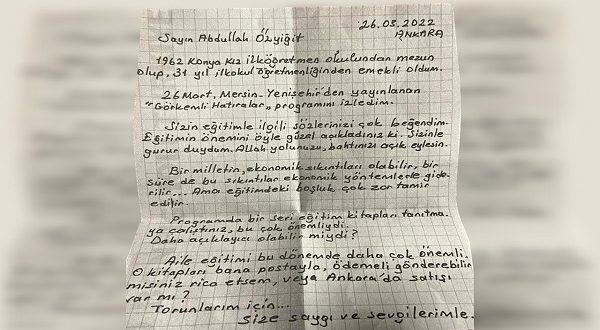 26.03.2022
Sayın Abdullah ÖZyiğit ANKARA
1962 Konya Kız ilköğretmen okulundan mezun
olup, 31 yıl ilkokul öğretmenliğinden emekli oldum.
26 Mart, Mersin-Yenişehir'den yayınlanan
"Görkemli Hatıralar" programını izledim.
Sizin eğitimle ilgili sözlerinizi çok beğendim.
Eğitimin önemini öyle güzel açıkladınız ki. Sizinle
gurur duydum. Allah yolunuzu, bahtınızı açık eylesin.
Bir milletin, ekonomik sıkıntıları olabilir, bir
süre de bu sıkıntılar ekonomik yöntemlerle gide-
rilir... Ama eğitimdeki boşluk çok zor tamir
edilir.
Programda bir seri eğitim kitapları tanıtma-
ya çalıştınız, bu çok önemliydi.
Daha açıklayıcı olabilir miydi?
Aile eğitimi bu dönemde daha çok önemli.
O kitapları bana postayla, ödemeli gönderebilir
misiniz rica etsem, veya Ankara'da satışı
var mı?
Torunlarım için...
Size saygı ve sevgilerimle.